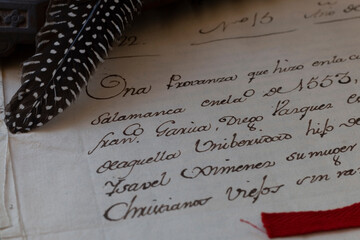 Nº 15
Año de
22
Una Provanza que hizo en la c
Salamanca en el aº de 1553
fran.co Garcia, Diego Vazquez
de aquella Unibersidad hijo de
Ysavel Ximenez su muger
Christianos Viejos sin ra